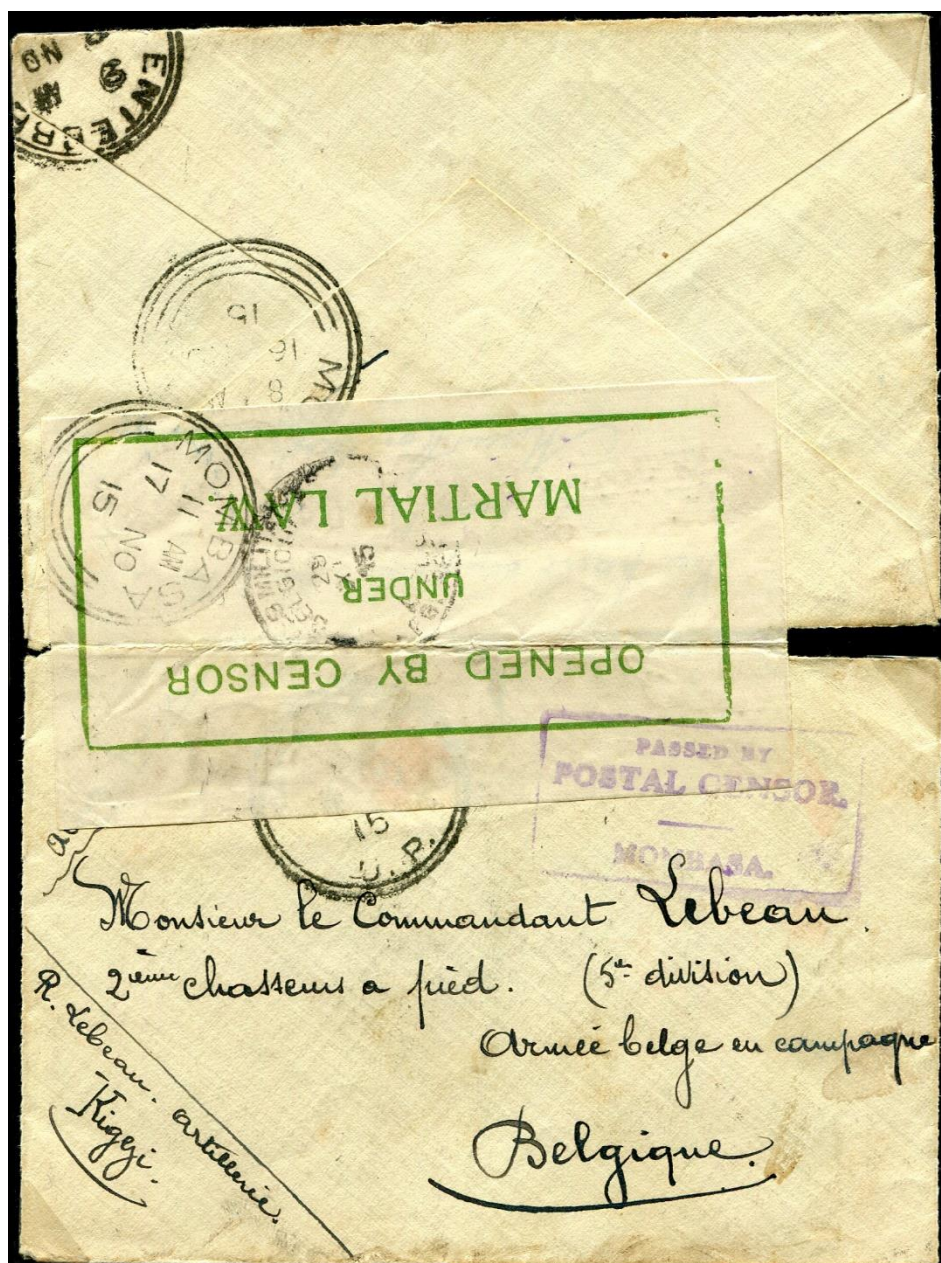 ENTEBBE
NO
15
16
8
MO
MOMBASA
11 AM
17 NO
15
OPENED BY CENSOR
UNDER
MARTIAL LAW
15
U.P.
PASSED BY
POSTAL CENSOR.
MOMBASA.
Monsieur le Commandant Lebeau.
2ième chasseurs a pied. (5e division)
Armée belge en campagne
Belgique.
R. Lebeau. artillerie.
Kigezi.